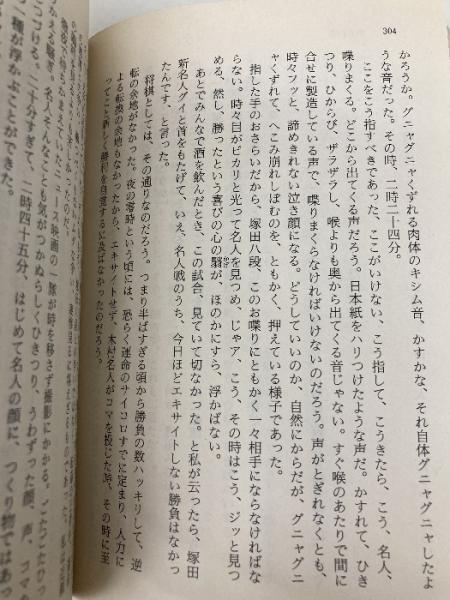 304
かろうか。グニャグニャくずれる肉体のキシム音、かすかな、それ自体グニャグニャしたよ
うな音だった。その時、二時二十四分。
ここをこう指すべきであった、ここがいけない、こう指して、こうきたら、こう、名人、
喋りまくる。どこから出てくる声だろう。日本紙をハリつけたような声だ。かすれて、ひき
つり、ひからび、ザラザラし、喉よりも奥から出てくる音じゃない。すぐ喉のあたりで間に
合せに製造している声で、喋りまくらなければいけないのだろう。声がとぎれなくとも、
時々フッと、諦めきれない泣き顔になる。どうしていいのか、自然にからだが、グニャグニ
ャくずれて、へこみ崩れしぼむのを、ともかく、押えている様子であった。
指した手のおさらいだから、塚田八段、このお喋りにともかく一々相手にならなければな
らない。時々目がピカリと光って名人を見つめ、じゃア、こう、その時はこう、ジッと見つ
める、然し、勝ったという喜びの心の騒が、ほのかにすら、浮かばない。
あとでみんなで酒を飲んだとき、この試合、見ていて切なかった。と私が云ったら、塚田
新名人グイと首をもたげて、いえ、名人戦のうち、今日ほどエキサイトしない勝負はなかっ
たんです、と言った。
将棋としては、その通りなのだろう。つまり半ばすぎる頃から勝負の数ハッキリして、逆
転の余地がなかった。夜の零時という頃には、恐らく運命のサイコロすでに定まり、人力に
よる転換の余地もなかったから、エキサイトせず、木村名人がコマを投じた時、その時に至
ってことに新しく勝利を自覚するに及ばなかったのだろう。
ニュース映画の一隊が時を移さず撮影にかかる。
とも気がつかぬらしくひきつり、うわずった顔、声、
つづける。二十分すぎ、二時四十五分、はじめて名人の顔に、つくり物ではあっ
種が浮かぶことができた。